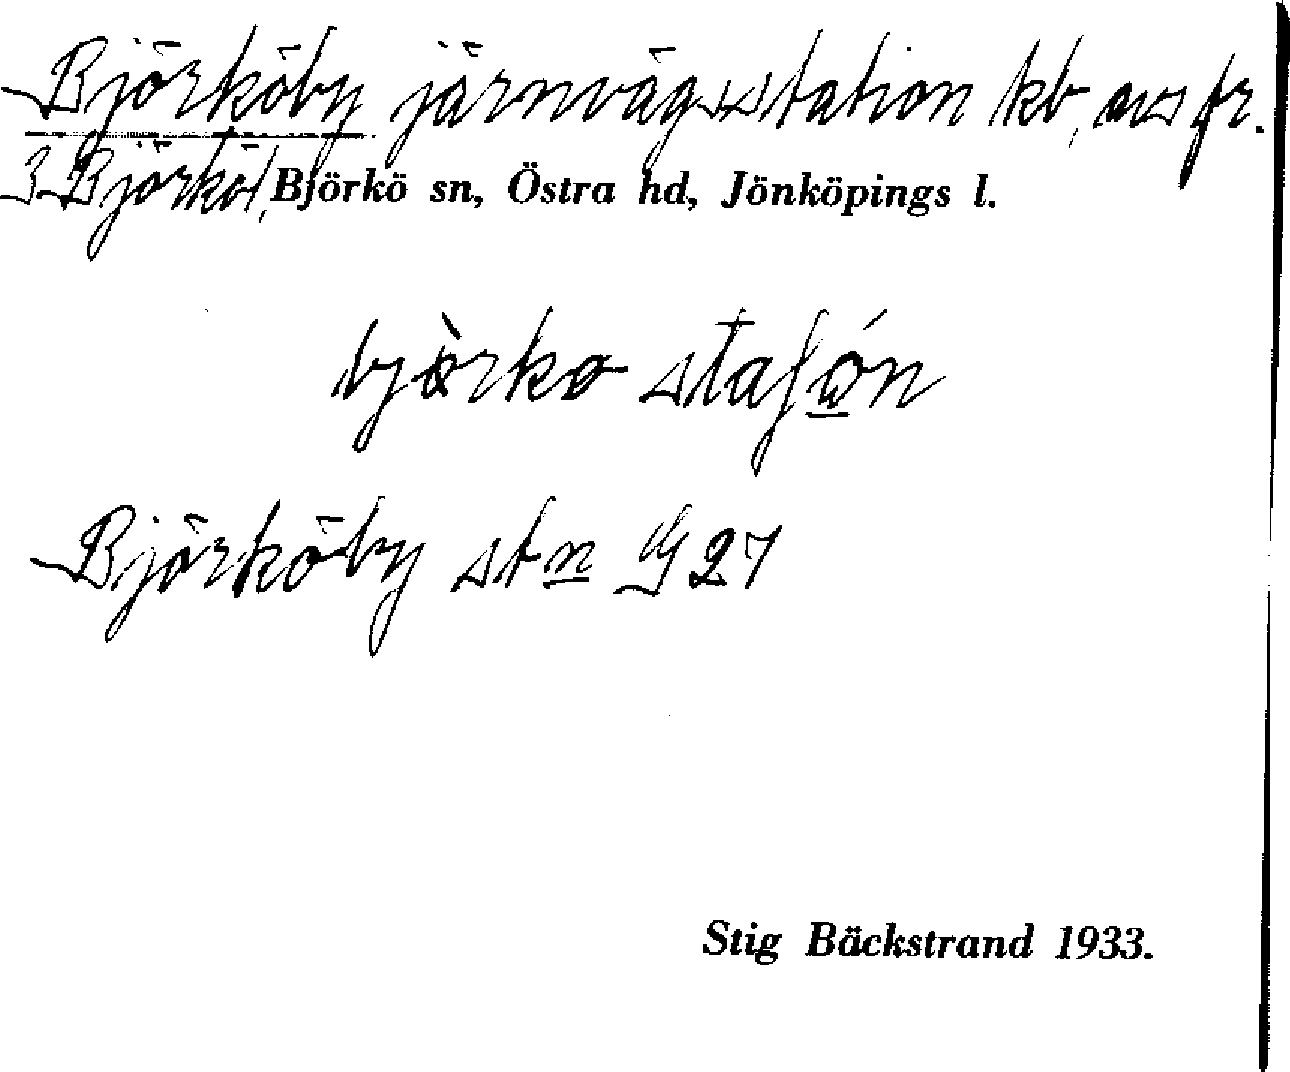 Björköby järnvägsstation kb, avs fr.
3 Björkö, Björkö sn, Östra hd, Jönköpings l.
bjɵ̀rkø staʃώn
Björköby stn G27
Stig Bäckstrand 1933.